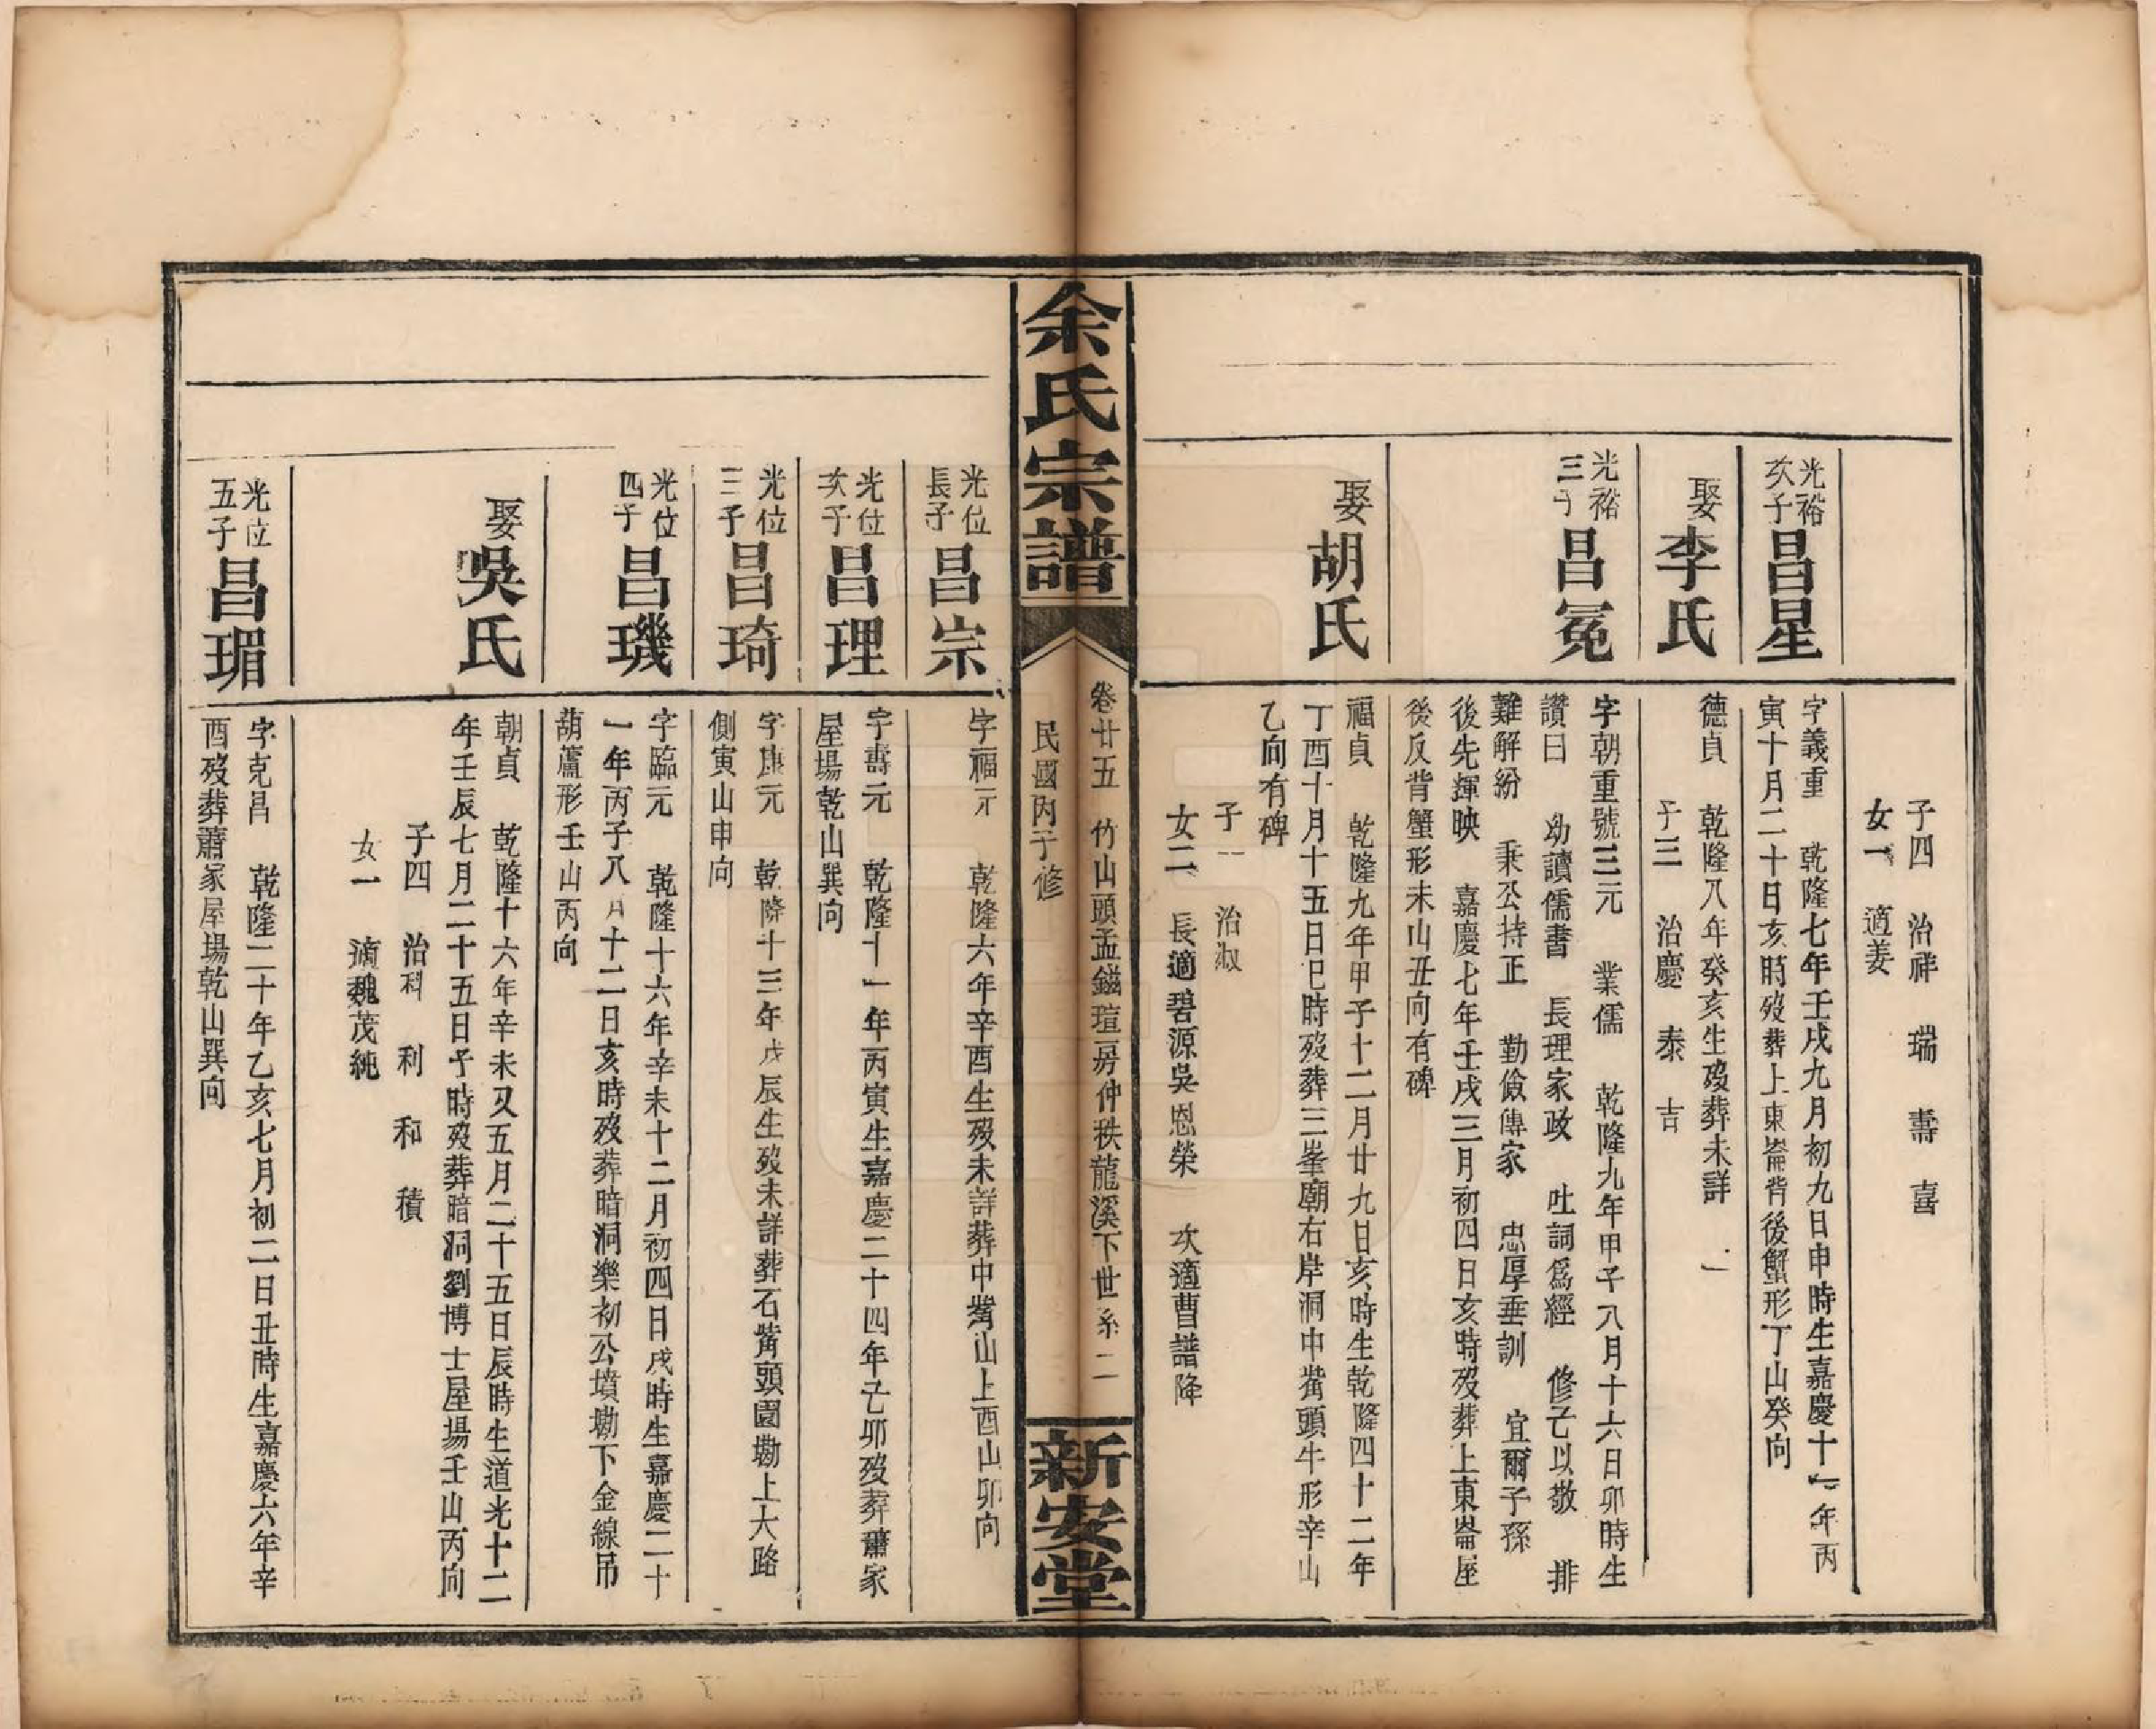 子四　治祥　瑞　壽　喜
女一　適姜
光裕
次子
昌星
字義重　乾隆七年壬戌九月初九日申時生嘉慶十一年丙
寅十月二十日亥時歿葬上東崙背後蟹形丁山癸向
娶
李氏
德貞　乾隆八年癸亥生歿葬未詳
子三　治慶　泰　吉
光裕
三子
昌冕
字朝重號三元　業儒　乾隆九年甲子八月十六日卯時生
讚曰　幼讀儒書　長理家政　吐詞為經　修己以敬　排
難解紛　秉公持正　勤儉傳家　忠厚垂訓　宜爾子孫
後先輝映　嘉慶七年壬戌三月初四日亥時歿葬上東崙屋
後反背蟹形未山丑向有碑
娶
胡氏
福貞　乾隆九年甲子十二月廿九日亥時生乾隆四十二年
丁酉十月十五日巳時歿葬三峯廟右岸洞中嘴頭牛形辛山
乙向有碑
子一　治淑
女二　長適碧源吳恩榮　次適曹譜降
余氏宗譜
卷廿五　竹山頭孟鎡瑄房仲秩龍溪下世系二
民國丙子修
新安堂
光位
長子
昌宗
字福元　乾隆六年辛酉生歿未詳葬中嘴山上酉山卯向
光位
次子
昌理
字壽元　乾隆十一年丙寅生嘉慶二十四年己卯歿葬蕭家
屋場乾山巽向
光位
三子
昌琦
字康元　乾隆十三年戊辰生歿未詳葬石嘴頭園墈上大路
側寅山申向
光位
四子
昌璣
字臨元　乾隆十六年辛未十二月初四日戌時生嘉慶二十
一年丙子八月十二日亥時歿葬暗洞樂初公墳墈下金線吊
葫蘆形壬山丙向
娶
吳氏
朝貞　乾隆十六年辛未又五月二十五日辰時生道光十二
年壬辰七月二十五日子時歿葬暗洞劉博士屋場壬山丙向
子四　治科　利　和　積
女一　適魏茂純
光位
五子
昌瑂
字克昌　乾隆二十年乙亥七月初二日丑時生嘉慶六年辛
酉歿葬蕭家屋場乾山巽向